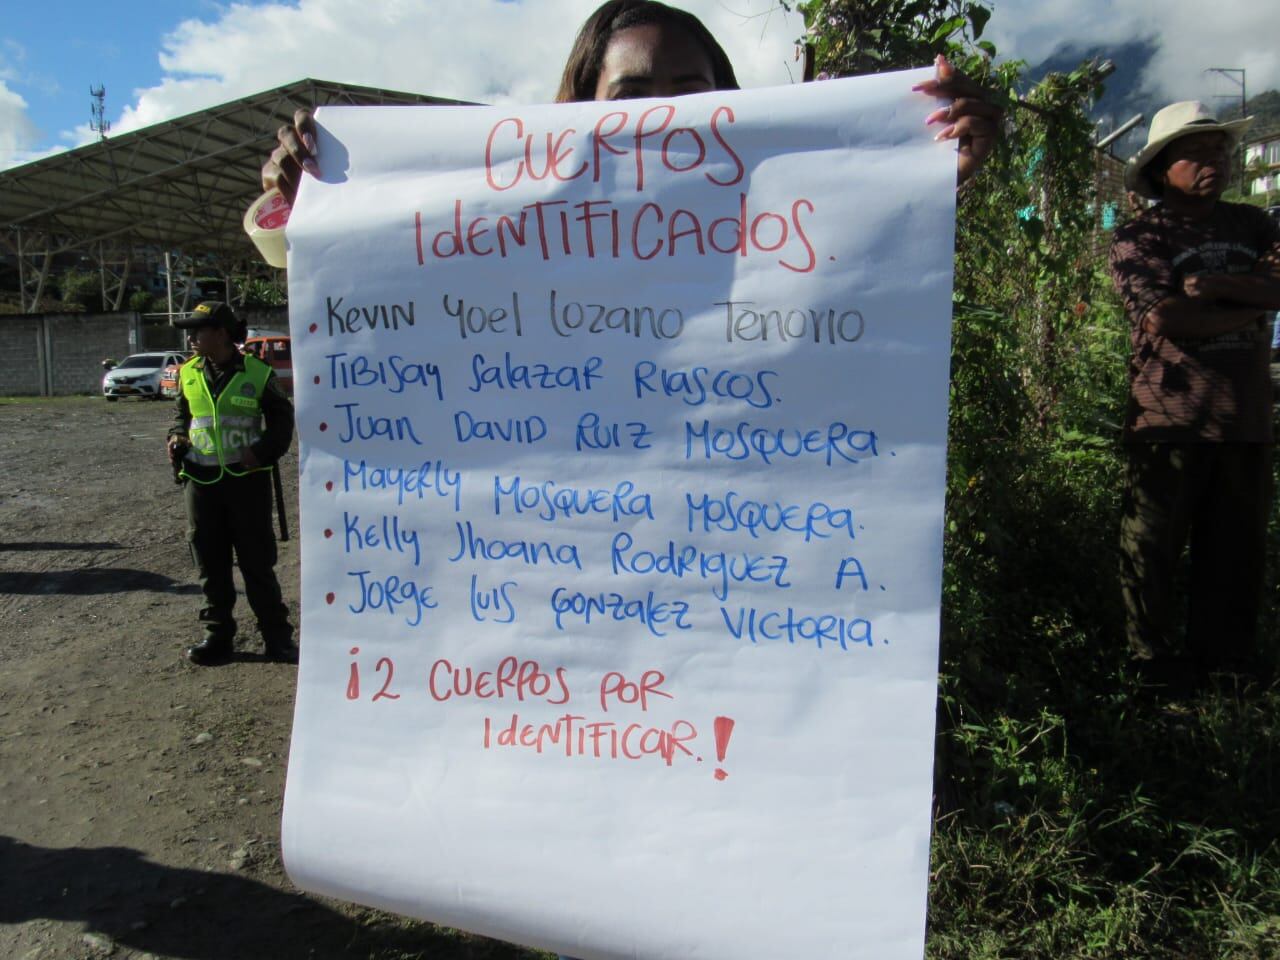 CUERPOS
IdENTIFICAdOS.
• KEVIN Yoel Lozano Tenorio
• TIBISay Salazar RIascos.
• Juan DAVID RUIZ MOSQUERA.
• Mayerly MOSQUERA MOSQUERA.
• Kelly Jhoana RODRIGUEZ A.
• JORGE LUIS GONZALEZ VICTORIA.
¡2 CUERPOS POR
IdENTIFICAR.!